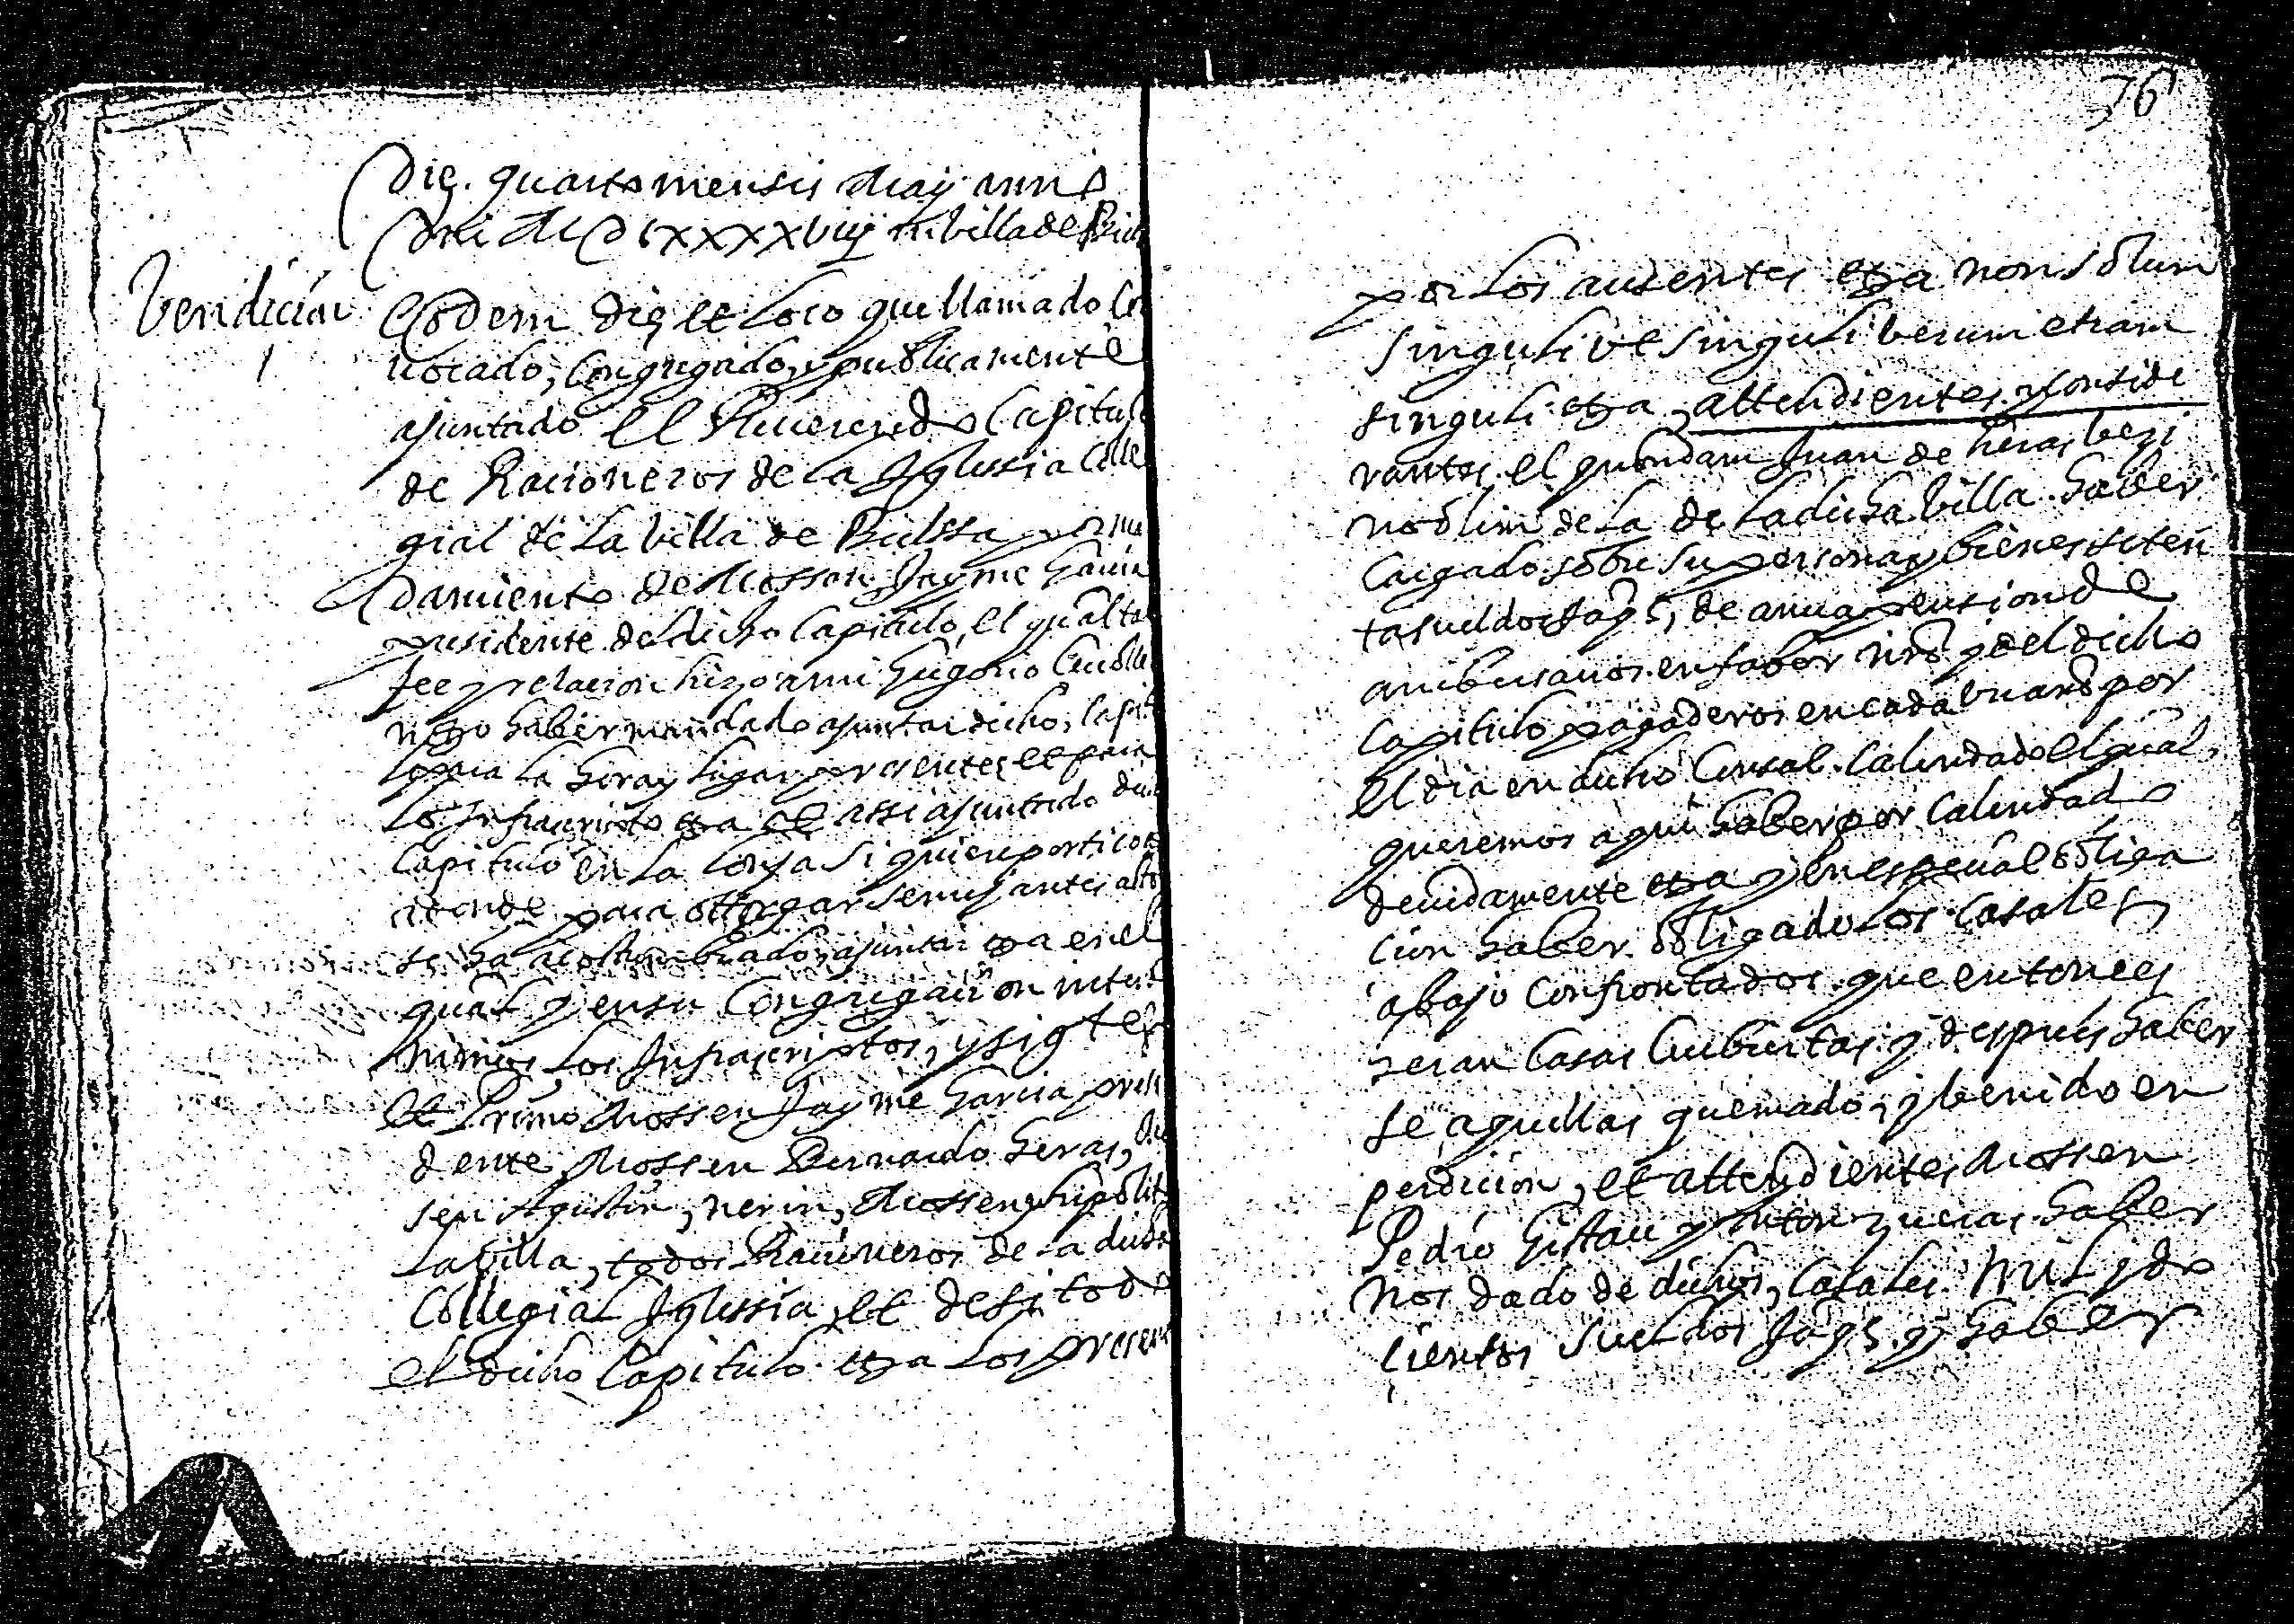 Die quarto mensis Maÿ anno
Dni M D Lxxxxviiij in villa de Biel
Vendicion
1
Eodem die et loco que llamado Con
vocado, Congregado, y publicamente
ajuntado el Reverendo Capitulo
de Racioneros de la Iglesia Colle
gial de la villa de Bielssa por man
damiento de Mossen Jayme Garcia
presidente del dicho Capitulo, el qual tal
fee y relacion hizo a mi
haber mandado ajuntar dicho, Capitu
lo para la hora y lugar presentes et para
lo Infrascripto etza et assi ajuntado dicho
Capitulo en la lonja Siquiere portico
a donde para ottorgar semejantes actos
se ha acostumbrado, ajuntar etza en el
qual y en su Congregacion interbi
nimos los Infrascriptos, y sigtes
Et Primo Mossen Jayme Garcia presi
dente Mossen Bernardo heras, Mo
sen Agustin, nerin, Mossen hipolito
la villa, todos Racioneros de la dicha
Collegial Iglessia, et de si todo
el dicho Capitulo etza los presentes
76
por los ausentes etza non solum
singuli ve singuli verum etiam
singuli etza, attendientes y conside
rantes el quondam Juan de heras vezi
no olim de la de la dicha villa haber
Cargado sobre su persona y bienes
ta sueldos Jaqs, de annua pension de
en fabor nro y del dicho
Capitulo pagaderos en cada un año por
el dia en dicho Censal Calendado el qual,
queremos aqui haber por Calendado
devidamente etza y en especial obliga
cion haber obligado los Casales
abajo Confrontados que entonces
heran Casas Cubiertas y despues haber
se aquellas quemado, y benido en
perdicion, et attendientes Mossen
Pedro Gistau y Anton haber
nos dado de dichos, Casales mil y do
cientos sueldos Jaqs. y haber